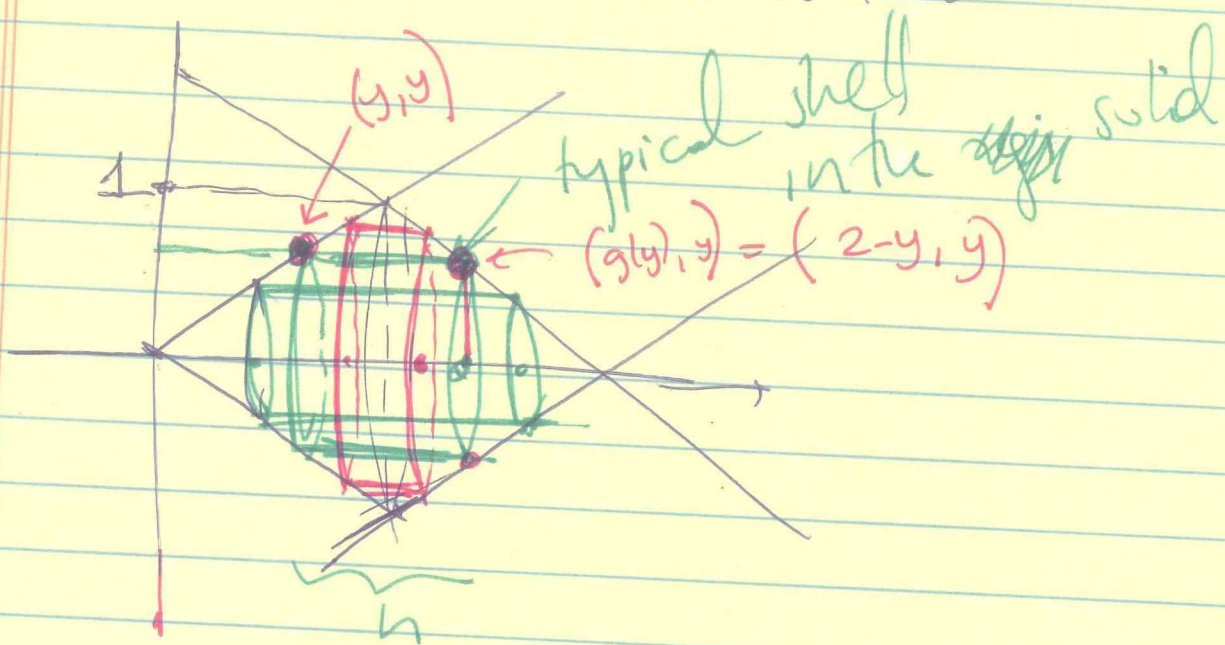 (y,y)
typical shell
in the solid
1
(g(y),y) = (2-y, y)
h